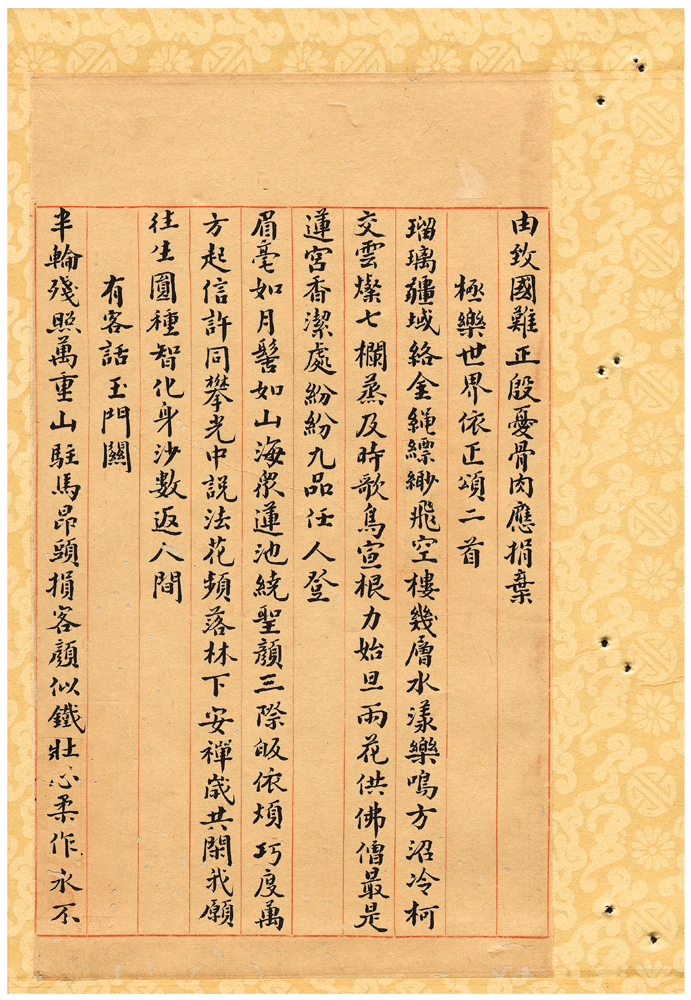 由致國難正殷憂骨肉應捐棄
極樂世界依正頌二首
瑠璃疆域絡金繩縹緲飛空樓幾層水漾樂鳴方沼冷柯
交雲燦七欄蒸及時歌鳥宣根力始旦雨花供佛僧最是
蓮宮香潔處紛紛九品任人登
眉毫如月髻如山海眾蓮池繞聖顏三際皈依煩巧度萬
方起信許同攀光中説法花頻落林下安禪歲共閑我願
往生圓種智化身沙數返人間
有客話玉門關
半輪殘照萬重山駐馬昂頭損客顏似鐵壯心柔作水不